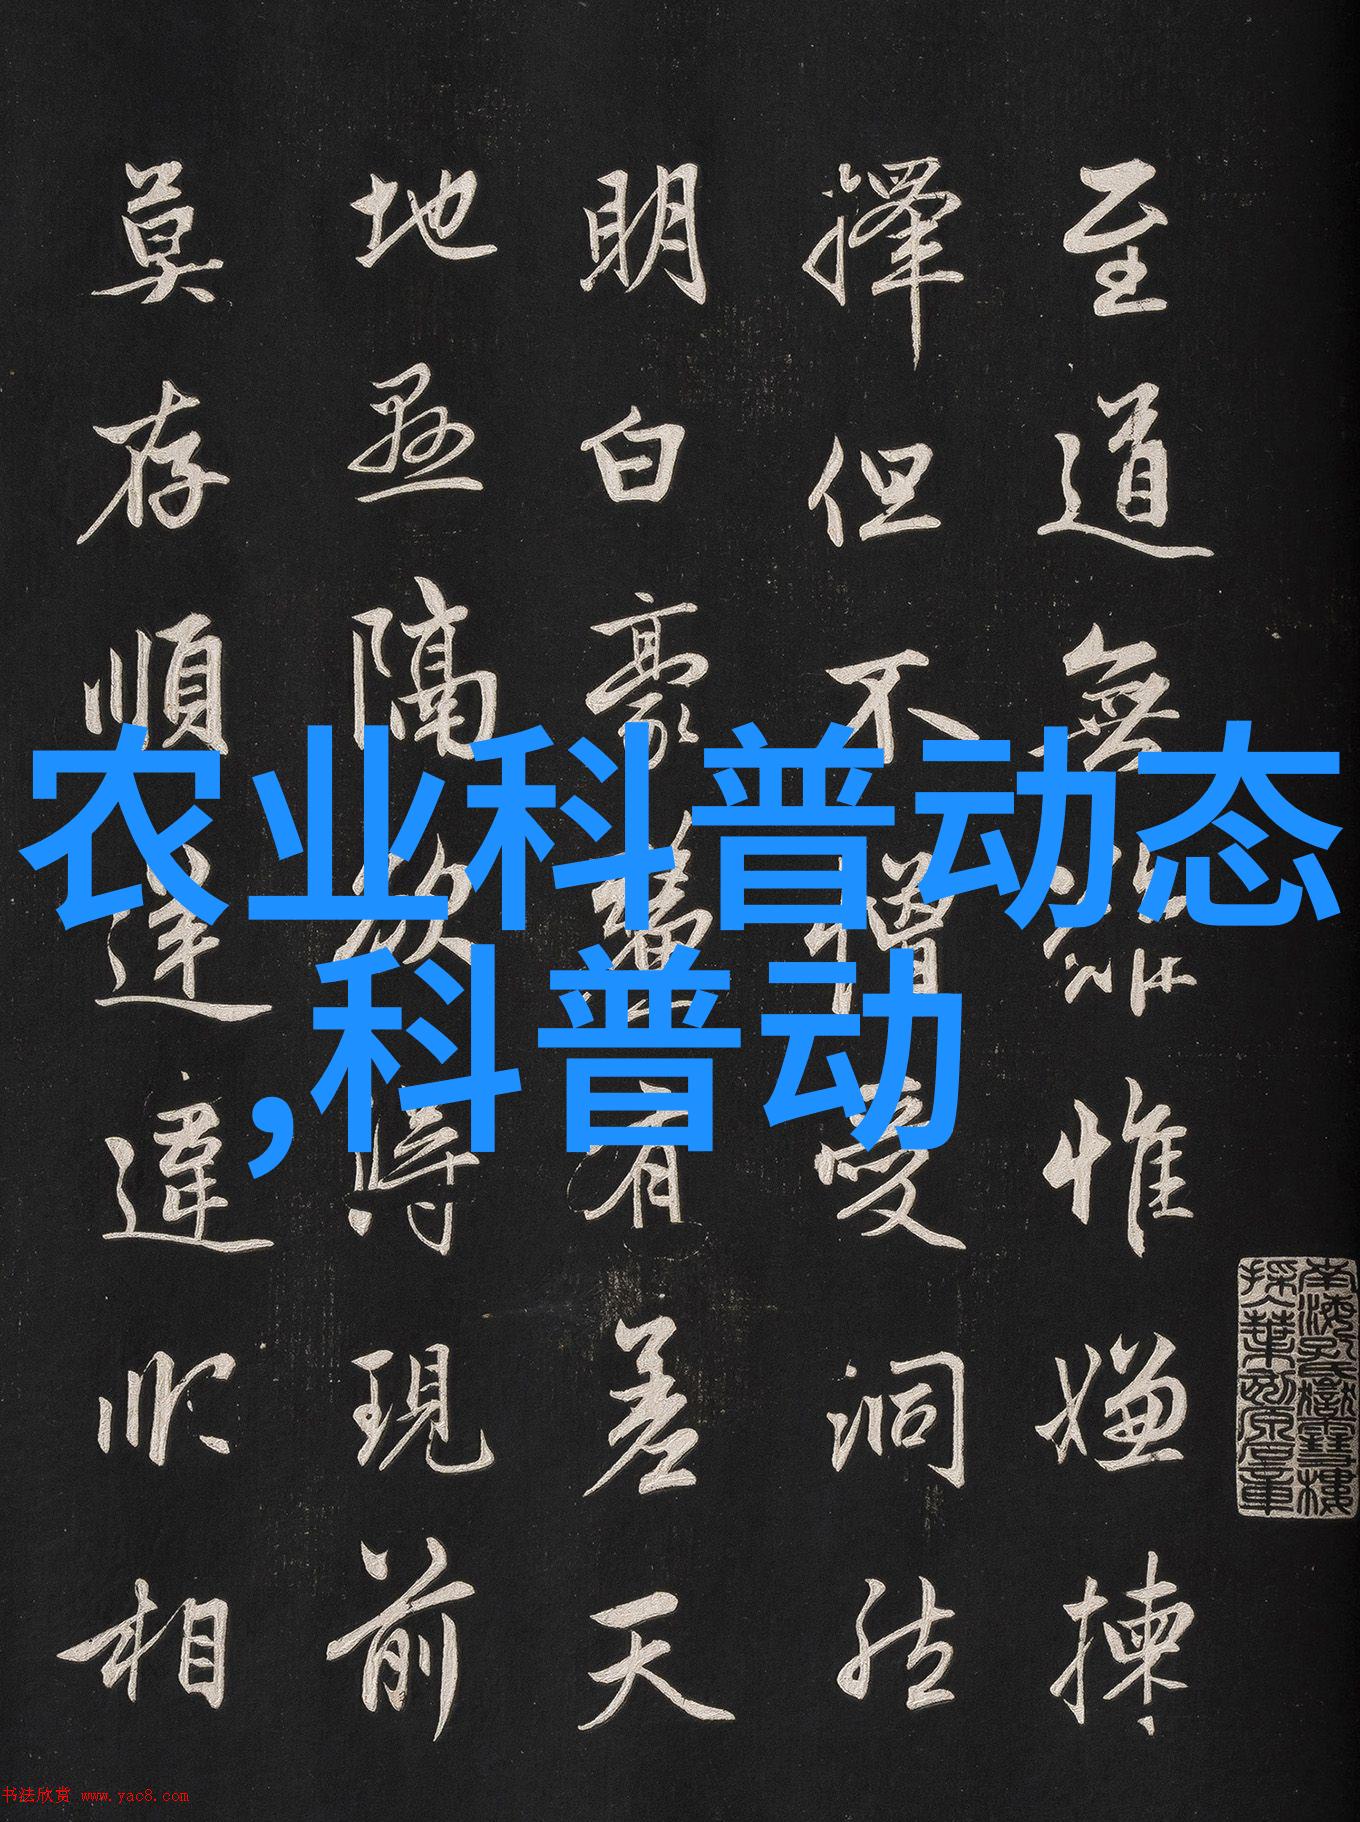 至道無難惟嫌揀
擇但不憎愛洞然
明白豪釐有差天
地懸隔欲得現前
莫存順逆違順相
农业科普动态
,科普动
书法欣赏 www.yac8.com